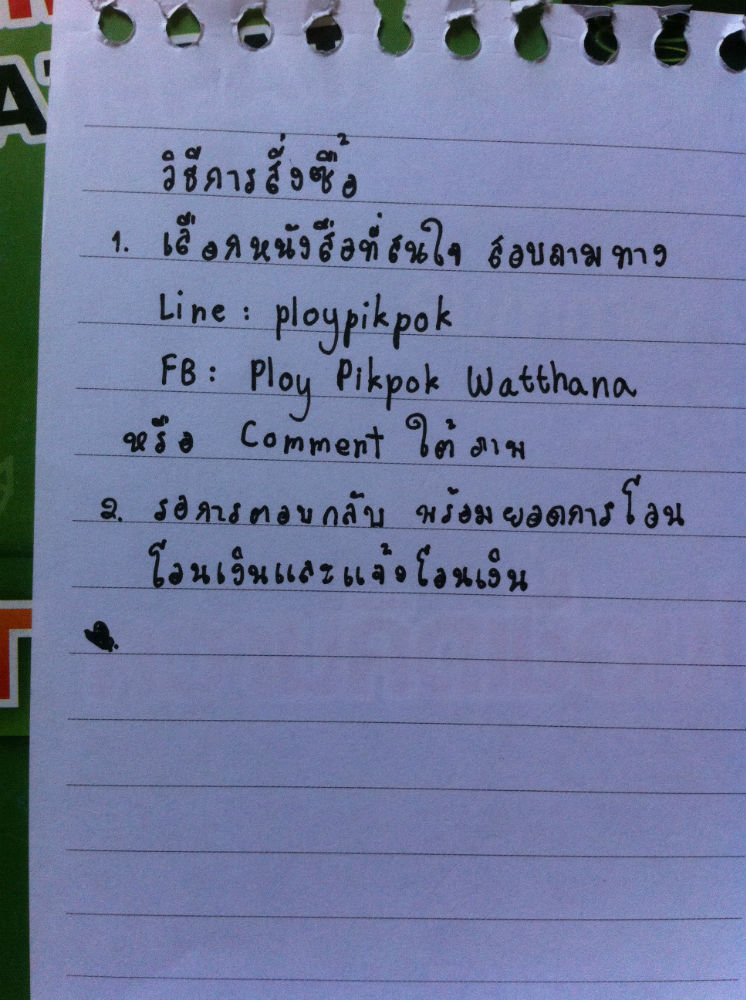 วิธีการสั่งซื้อ
1. เลือกหนังสือที่สนใจ สอบถามทาง
Line : ploypikpok
FB : Ploy Pikpok Watthana
หรือ Comment ใต้ภาพ
2. รอการตอบกลับ พร้อมยอดการโอน
โอนเงินและแจ้งโอนเงิน